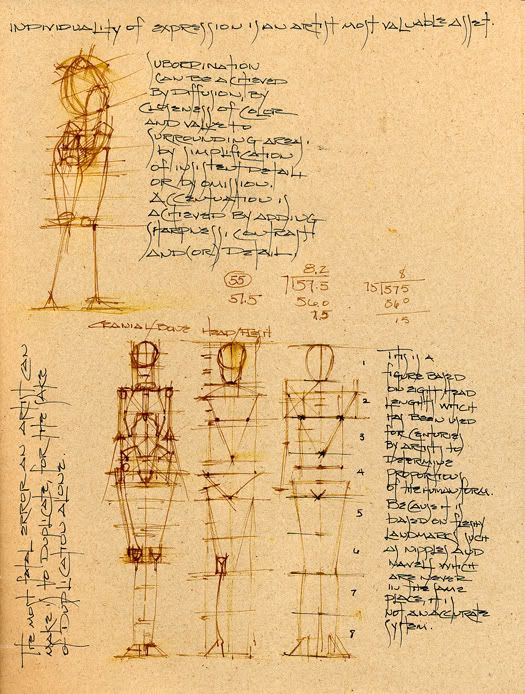 INDIVIDUALITY OF EXPRESSION IS AN ARTIST MOST VALUABLE ASSET.
SUBORDINATION
CAN BE ACHIEVED
BY DIFFUSION, BY
CLOSENESS OF COLOR
AND VALUE TO
SURROUNDING AREA,
BY SIMPLIFICATION
OF INSISTENT DETAIL
OR BY OMISSION.
ACCENTUATION IS
ACHIEVED BY ADDING
SHARPNESS, CONTRAST
AND (OR) DETAIL
55
57.5
8.2
7 57.5
56.0
1.5
8
75 575
560
15
CRANIAL/BONE HEAD/FLESH
THE MOST FATAL ERROR AN ARTIST CAN
MAKE IS TO DUPLICATE, FOR THE SAKE
OF DUPLICATION ALONE.
1
2
3
4
5
6
7
8
THIS IS A
FIGURE BASED
ON EIGHT HEAD
LENGHTS WHICH
HAS BEEN USED
FOR CENTURIES
BY ARTISTS TO
DETERMINE
PROPORTIONS
OF THE HUMAN FORM.
BECAUSE IT IS
BASED ON FLESHY
LANDMARKS SUCH
AS NIPPLES AND
NAVELS WHICH
ARE NEVER
IN THE SAME
PLACE, IT IS
NOT AN ACCURATE
SYSTEM.